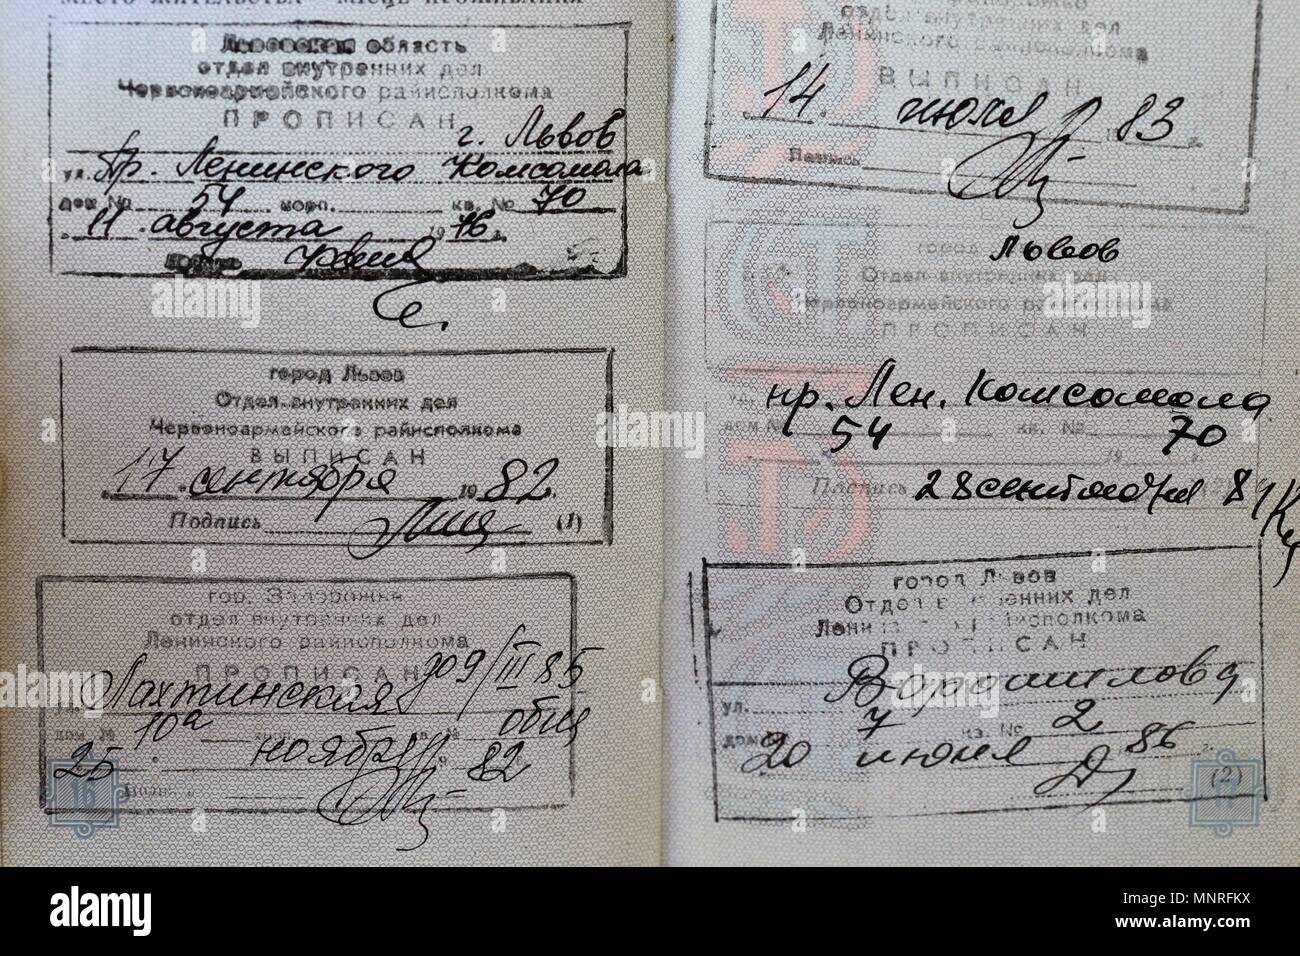 МЕСТО ЖИТЕЛЬСТВА - МІСЦЕ ПРОЖИВАННЯ
Львовская область
отдел внутренних дел
Червоноармейского райисполкома
ПРОПИСАН
г. Львов
ул. пр. Ленинского Комсомола
дом № 54 корп. кв. № 70
11 августа 1976
город Львов
Отдел внутренних дел
Червоноармейского райисполкома
ВЫПИСАН
17 сентября 1982
Подпись (1)
гор. Запорожья
отдел внутренних дел
Ленинского райисполкома
ПРОПИСАН до 9/III 85
ул. Лахтинская
дом № 10а корп. кв. № общ
25 ноября 82
16
отдел внутренних дел
Ленинского райисполкома
ВЫПИСАН
14 июля 83
Подпись
город Львов
Отдел внутренних дел
Червоноармейского райисполкома
ПРОПИСАН
пр. Лен. Комсомола
дом № 54 кв. № 70
Подпись 28 сентября 8
город Львов
Отдел внутренних дел
Ленинского райисполкома
ПРОПИСАН
ул. Ворошилова
дом 7 кв. № 2
20 июня 86
(2)
17
alamy
Image ID: MNRFKX
www.alamy.com